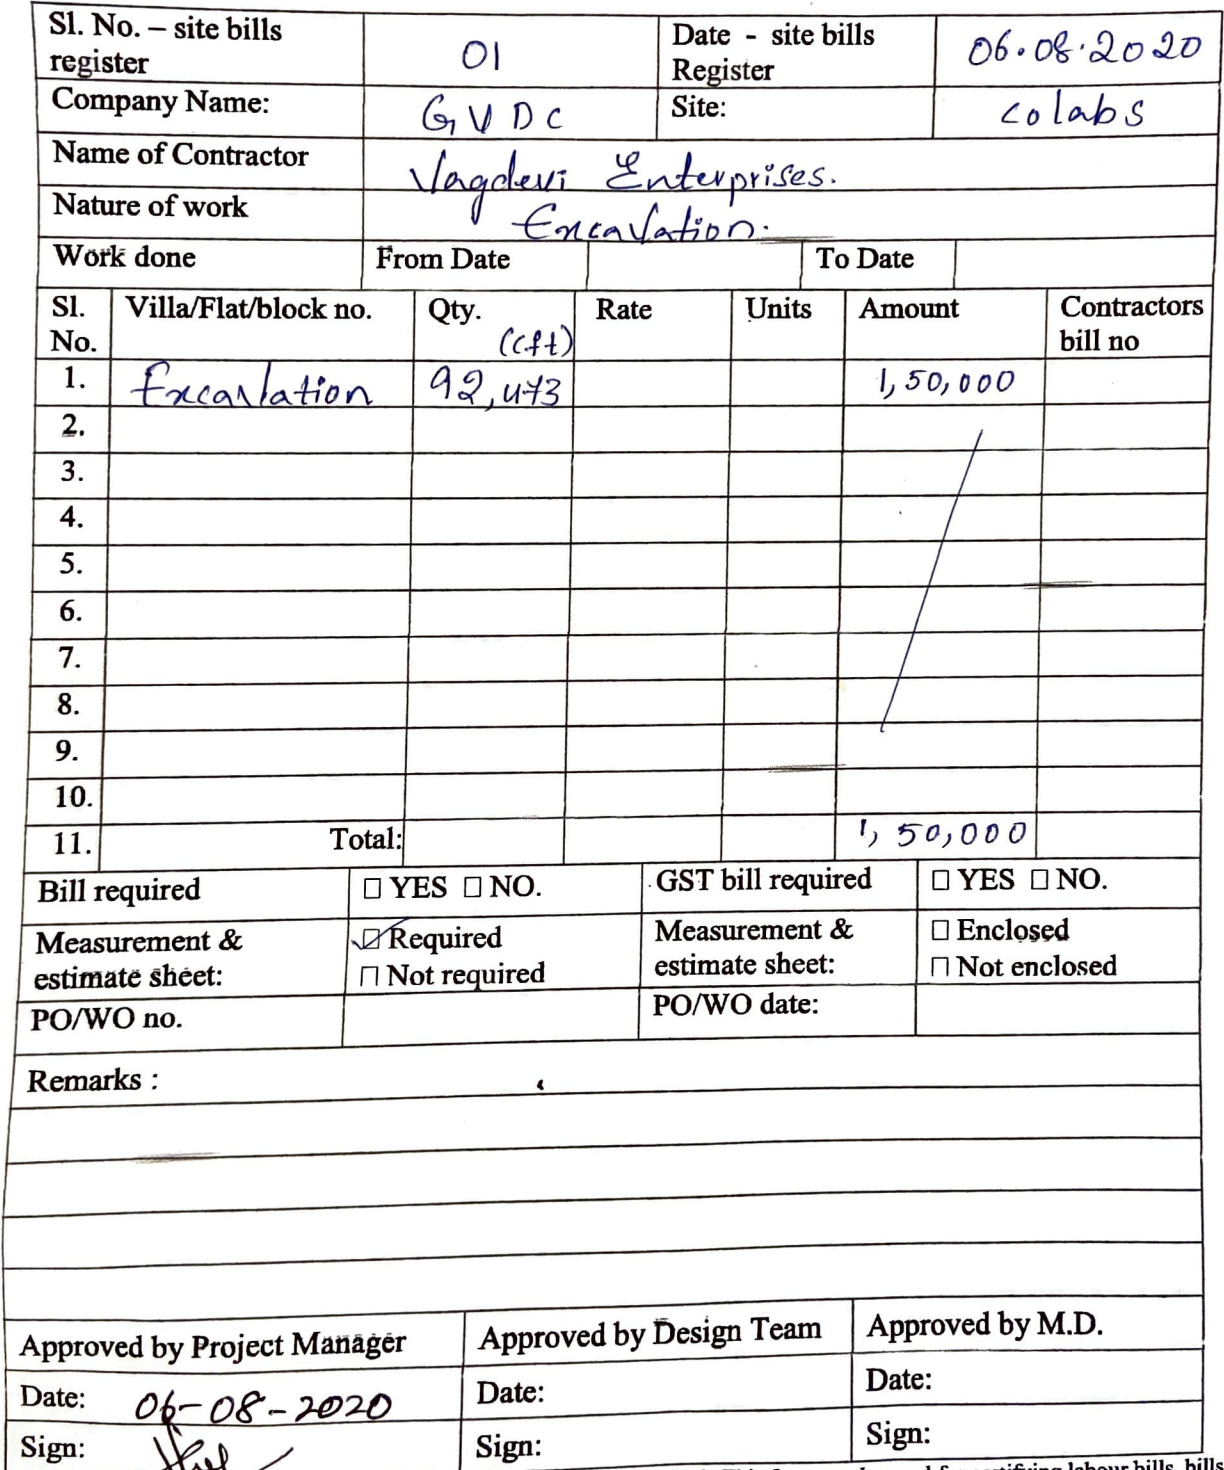 Sl. No. – site bills register 01 Date - site bills Register 06.08.2020
Company Name: GVDC Site: colabs
Name of Contractor Vagdevi Enterprises.
Nature of work Excavation.
Work done From Date To Date
Sl. No. Villa/Flat/block no. Qty. (cft) Rate Units Amount Contractors bill no
1. Excavation 92,473 1,50,000
2.
3.
4.
5.
6.
7.
8.
9.
10.
11. Total: 1,50,000
Bill required ☐ YES ☐ NO. GST bill required ☐ YES ☐ NO.
Measurement & estimate sheet: ☑ Required ☐ Not required Measurement & estimate sheet: ☐ Enclosed ☐ Not enclosed
PO/WO no. PO/WO date:
Remarks :
Approved by Project Manager Approved by Design Team Approved by M.D.
Date: 06-08-2020 Date: Date:
Sign: Sign: Sign:
labour bills, bills